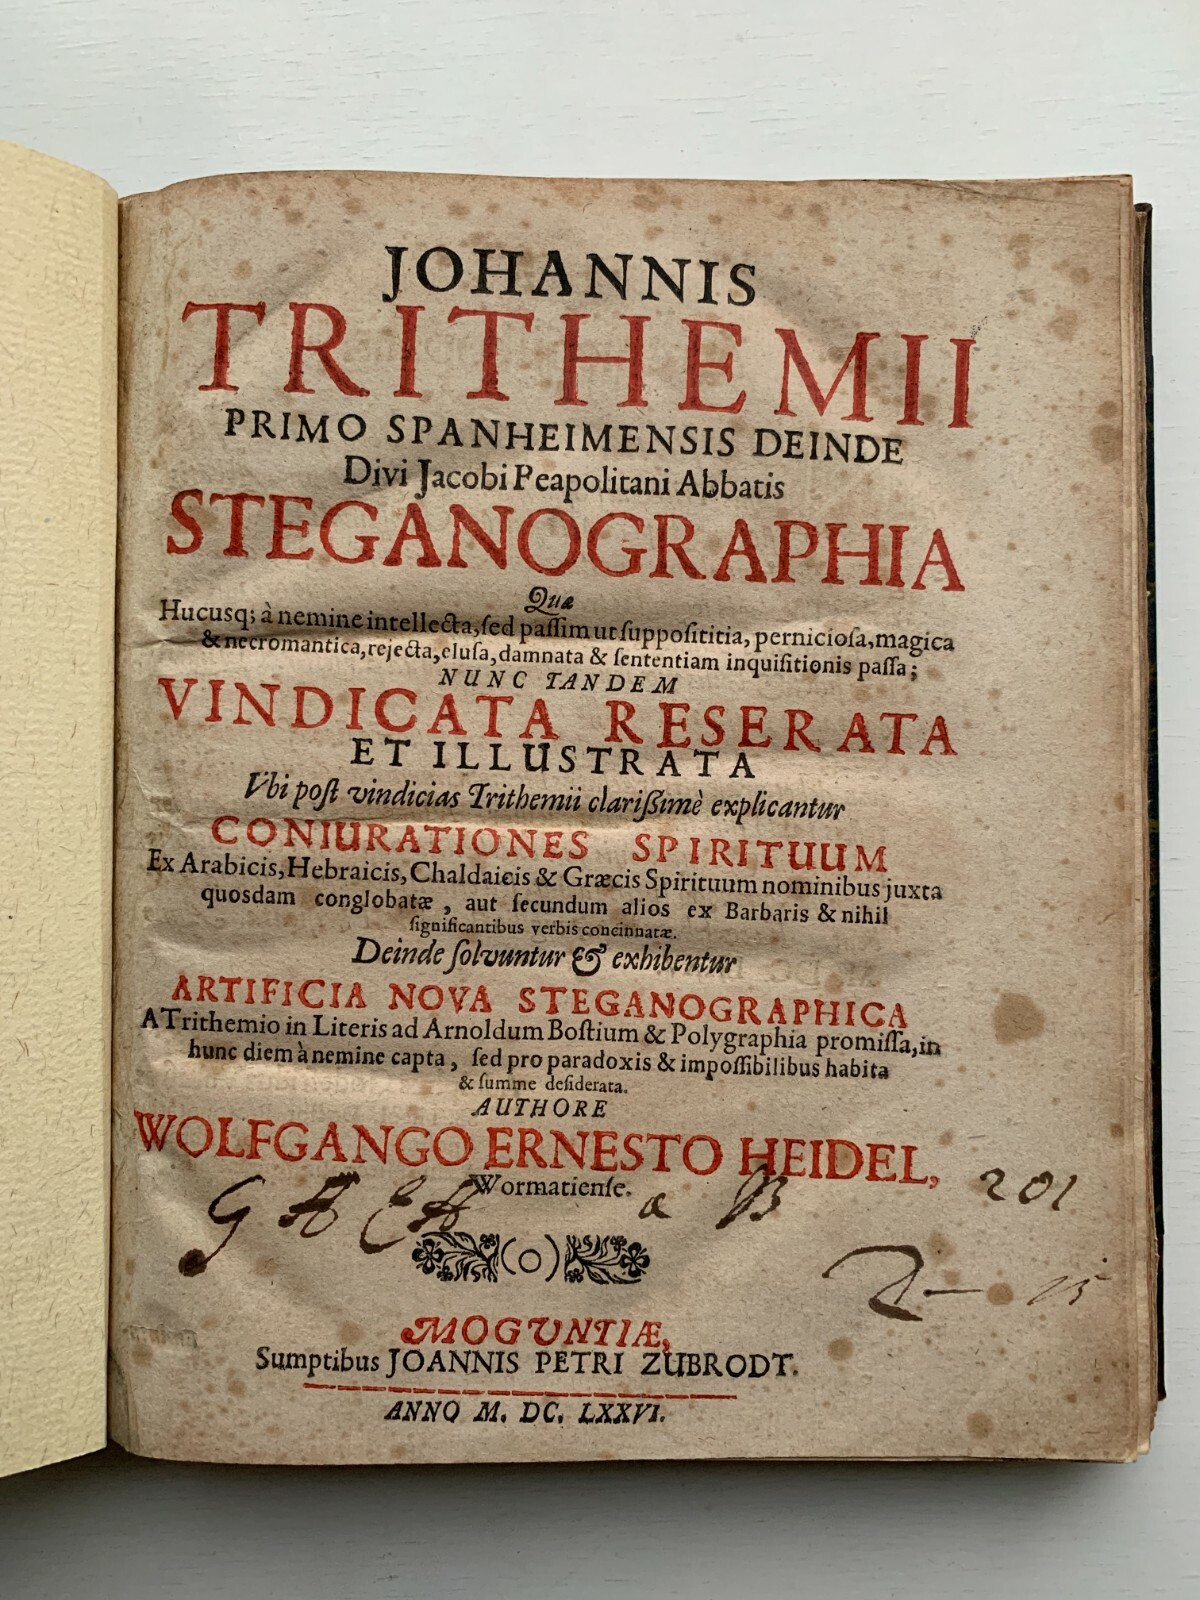 JOHANNIS
TRITHEMII
PRIMO SPANHEIMENSIS DEINDE
Divi Jacobi Peapolitani Abbatis
STEGANOGRAPHIA
Quæ
Hucusq; à nemine intellecta, ſed paſſim ut ſuppoſititia, pernicioſa, magica
& necromantica, rejecta, eluſa, damnata & ſententiam inquiſitionis paſſa;
NUNC TANDEM
VINDICATA RESERATA
ET ILLUSTRATA
Vbi poſt vindicias Trithemii clariſſimè explicantur
CONIURATIONES SPIRITUUM
Ex Arabicis, Hebraicis, Chaldaicis & Græcis Spirituum nominibus juxta
quosdam conglobatæ, aut ſecundum alios ex Barbaris & nihil
ſignificantibus verbis concinnatæ.
Deinde ſolvuntur & exhibentur
ARTIFICIA NOVA STEGANOGRAPHICA
A Trithemio in Literis ad Arnoldum Boſtium & Polygraphia promiſſa, in
hunc diem à nemine capta, ſed pro paradoxis & impoſſibilibus habita
& ſumme deſiderata.
AUTHORE
WOLFGANGO ERNESTO HEIDEL,
Wormatienſe.
201
(o)
MOGUNTIÆ,
Sumptibus JOANNIS PETRI ZUBRODT.
ANNO M. DC. LXXVI.